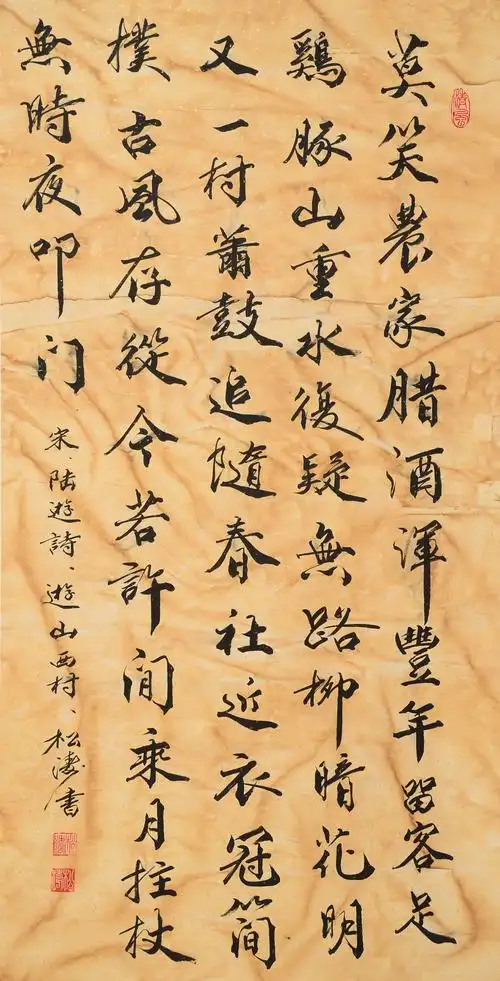 莫笑農家腊酒渾豐年留客足
鷄豚山重水復疑無路柳暗花明
又一村蕭鼓追隨春社近衣冠簡
樸古風存從今若許閒乘月拄杖
無時夜叩门
宋、陸遊詩、遊山西村、松濤書